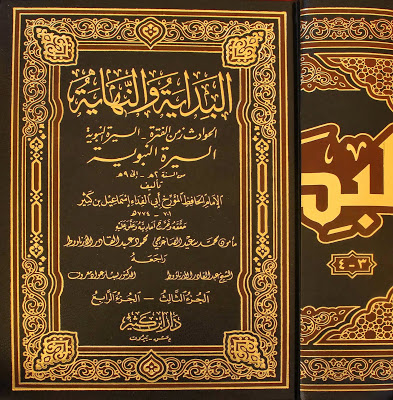 البداية والنهاية
الحوادث زمن الفترة - السيرة النبوية
السيرة النبوية
من السنة ٢هـ - إلى ٩هـ
تأليف
الإمام الحافظ المؤرخ أبي الفداء إسماعيل بن كثير
٧٠١ - ٧٧٤هـ
حققه وخرج أحاديثه وعلق عليه
مأمون محمد سعيد الصاغرجي محمود عبد القادر الأرناؤوط
راجعه
الشيخ عبد القادر الأرناؤوط الدكتور بشار عواد معروف
الجزء الثالث - الجزء الرابع
دار ابن كثير
دمشق - بيروت
٣-٤